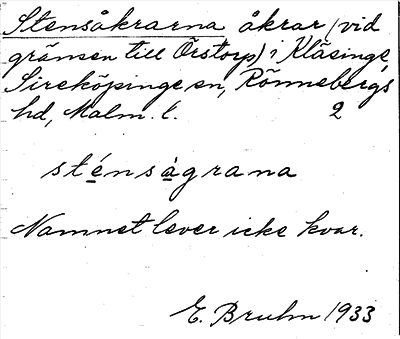 Stensåkrarna åkrar (vid
gränsen till Örstorp) i Kläsinge,
Sireköpinge sn, Rönnebergs
hd, Malm. l. 2
sténsàgrana
Namnet lever icke kvar.
E. Bruhn 1933